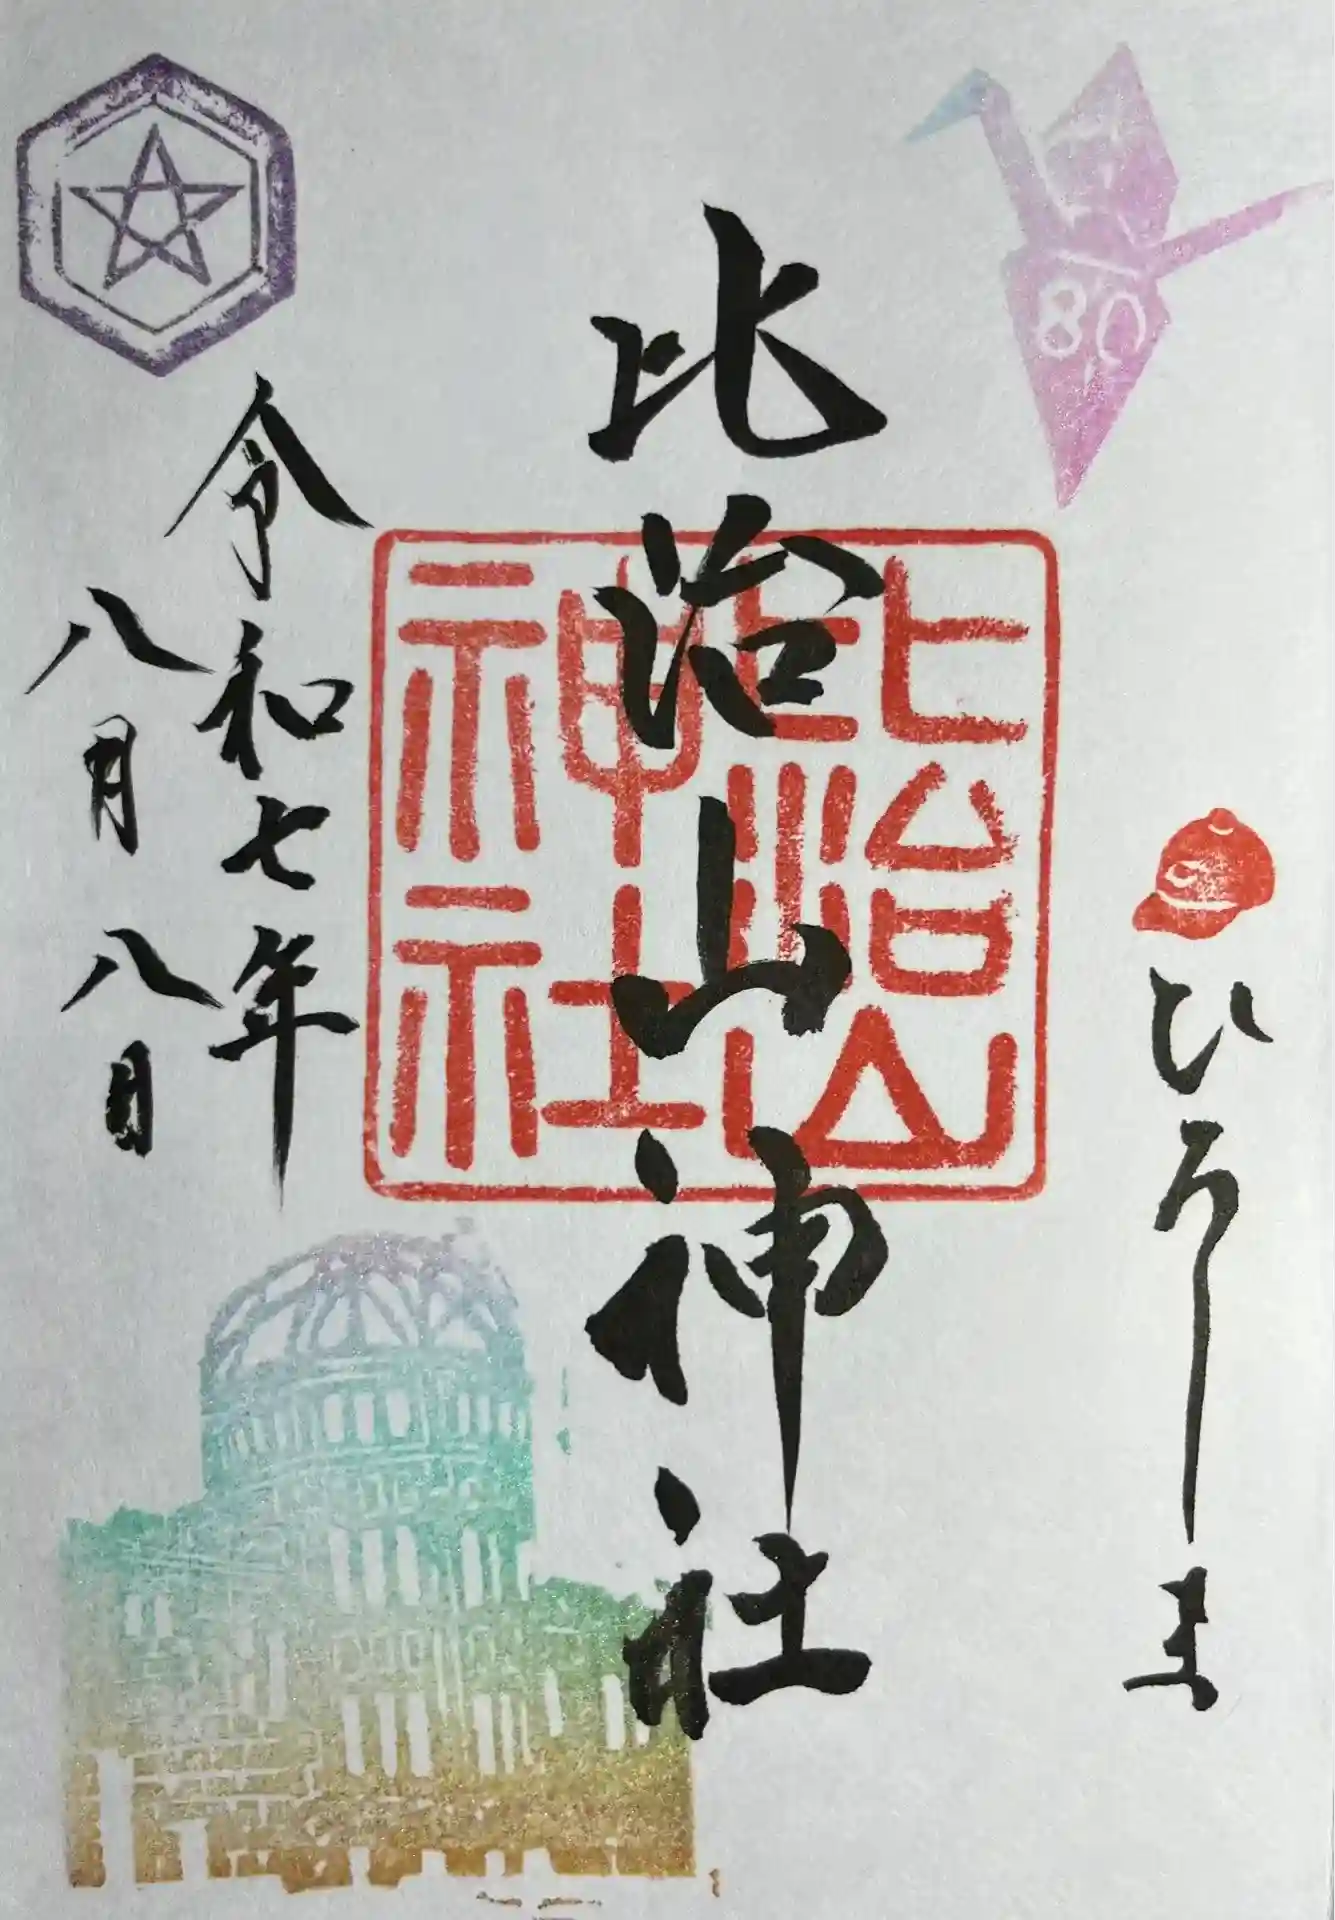 80
ひろしま
比治山神社
比治山
比治山
神社
令和七年
八月八日